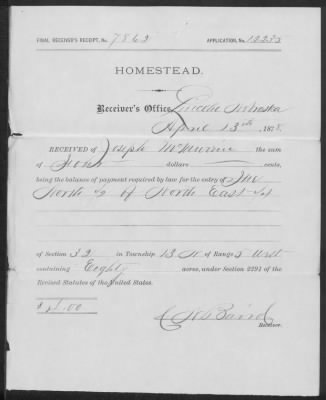 FINAL RECEIVER'S RECEIPT, No. 7862 APPLICATION, No. 12233
HOMESTEAD.
Receiver's Office, Lincoln Nebraska
April 13th, 1878.
RECEIVED of Joseph McMurrin the sum
of Four dollars cents,
being the balance of payment required by law for the entry of The
North ½ of North East ¼
of Section 32 in Township 13 N of Range West
containing Eighty acres, under Section 2291 of the
Revised Statutes of the United States.
$ 4.00
Baird
Receiver.